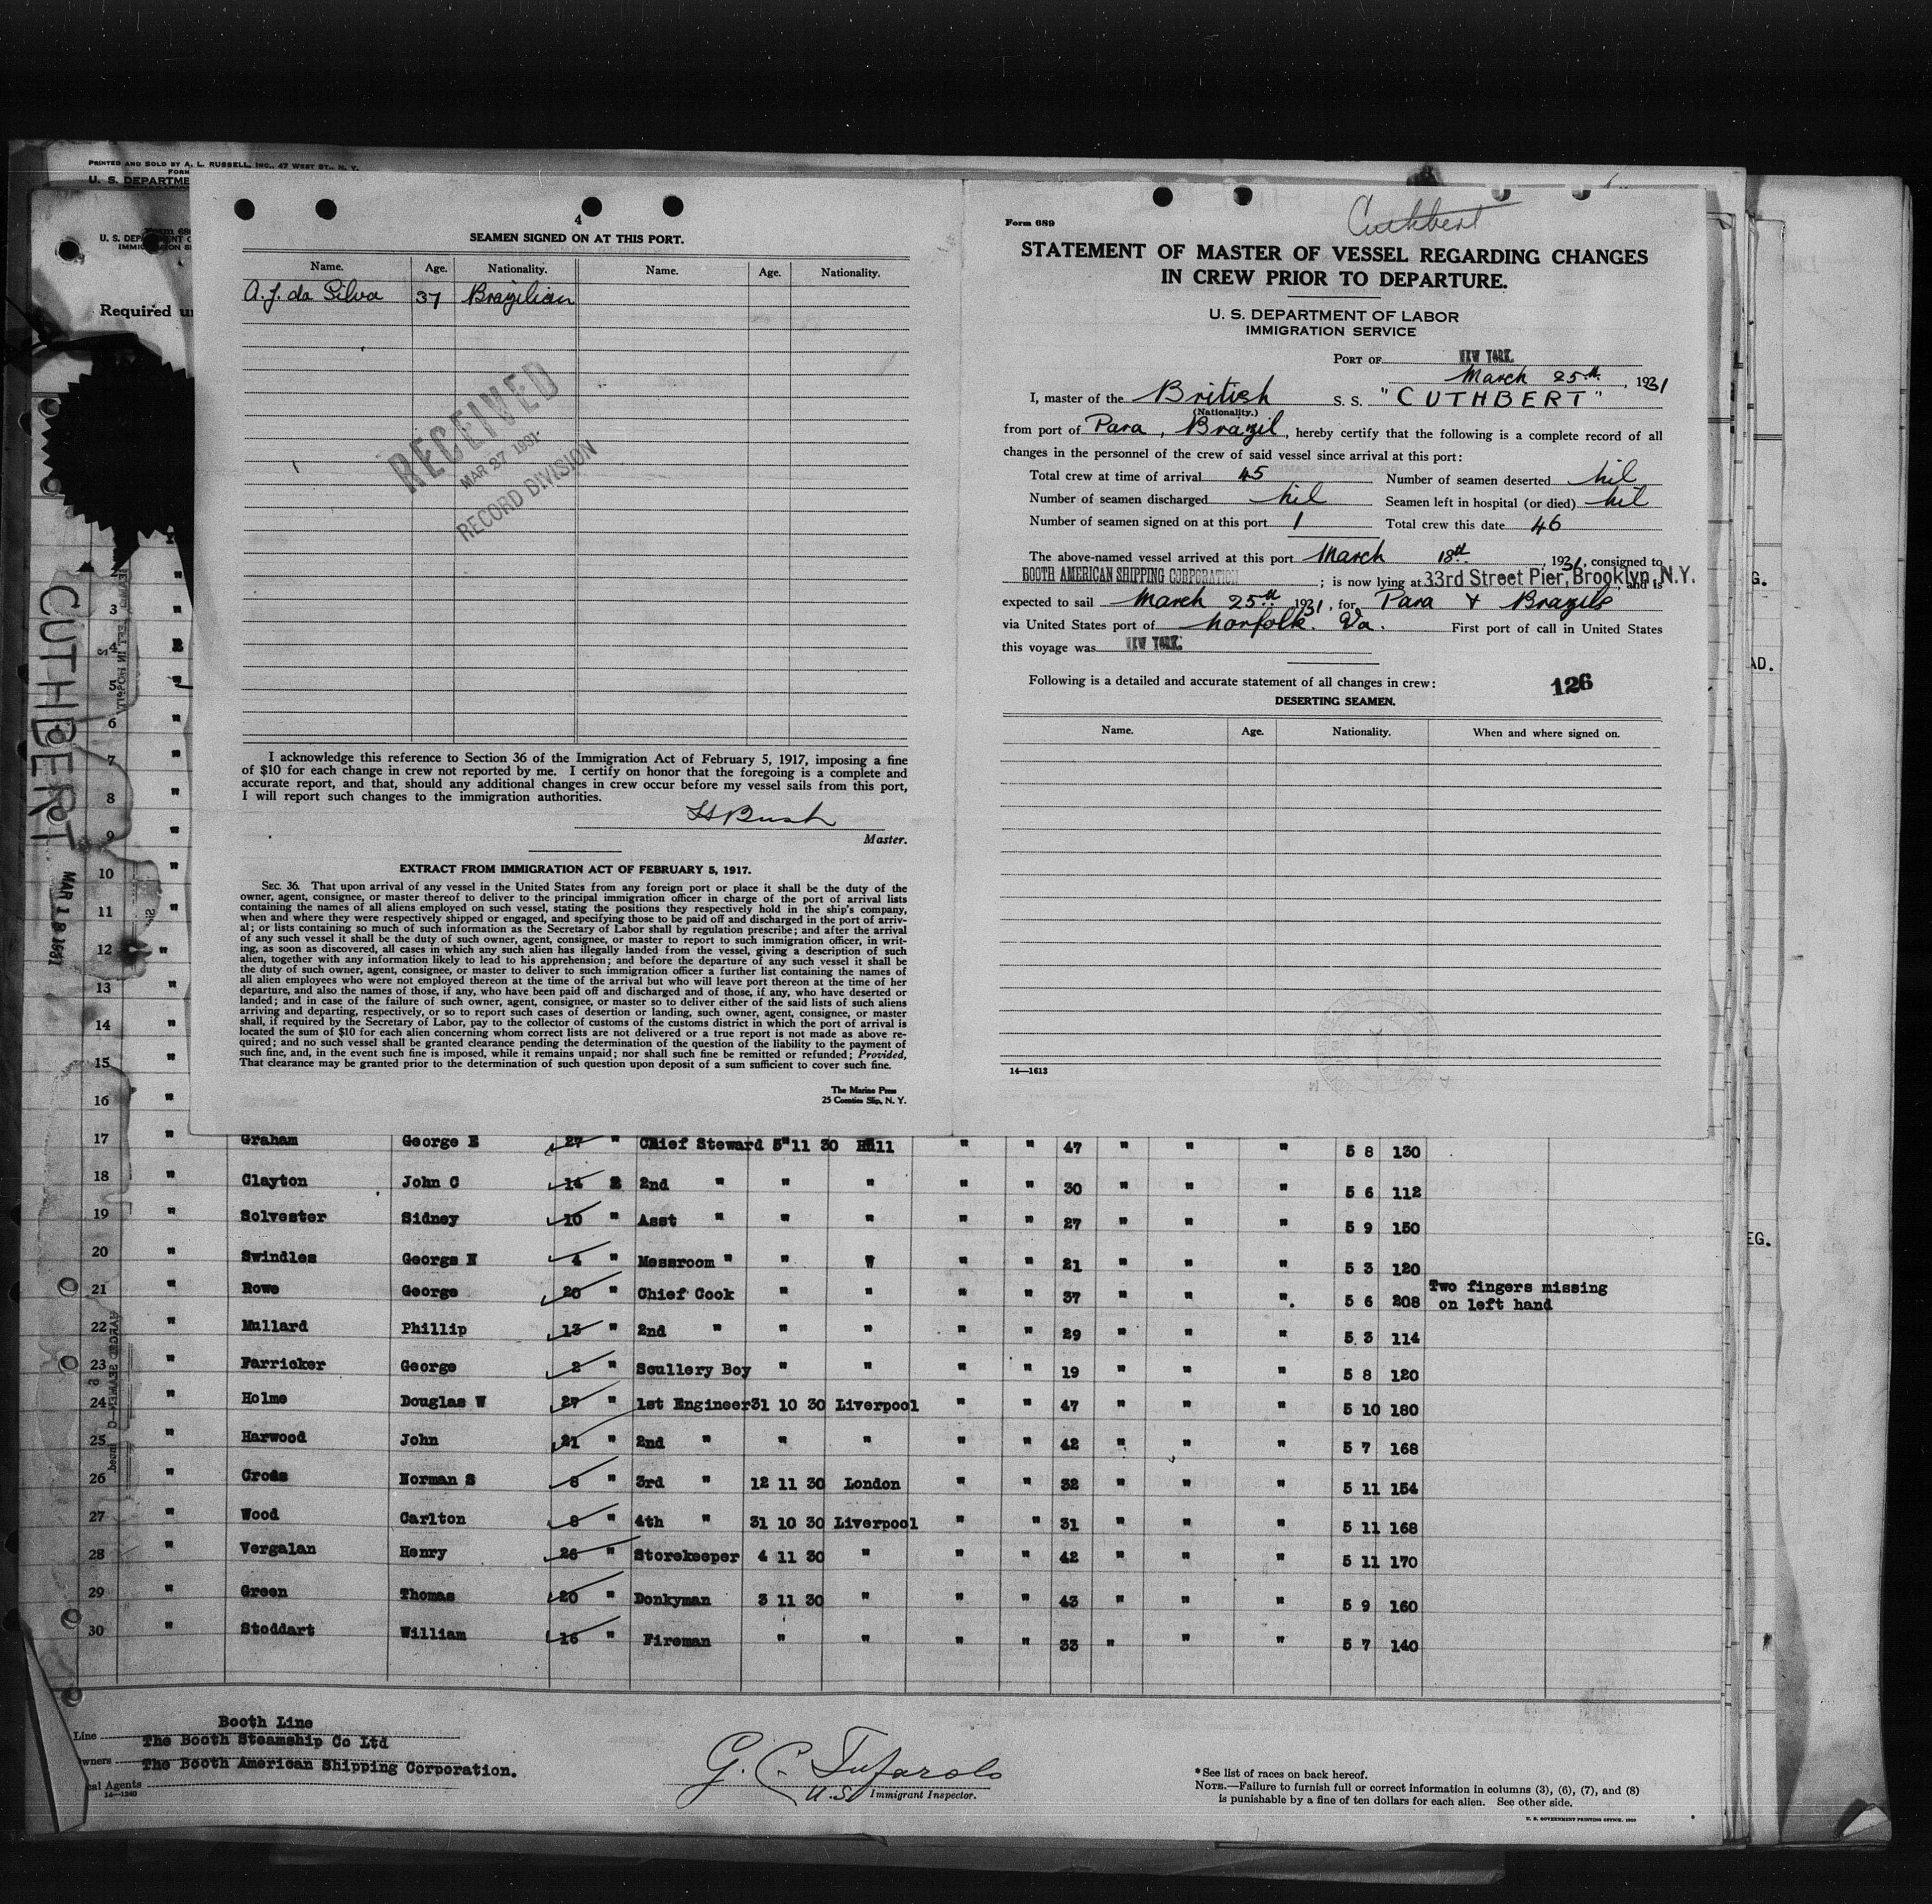 PRINTED AND SOLD BY A. L. RUSSELL, INC., 47 WEST ST., N. Y.
FORM
U. S. DEPARTME
Form 68
U. S. DEP
Required u
4
SEAMEN SIGNED ON AT THIS PORT.
Name. Age. Nationality. Name. Age. Nationality.
A. J. da Silva 37 Brazilian
RECEIVED
MAR 27 1931
RECORD DIVISION
I acknowledge this reference to Section 36 of the Immigration Act of February 5, 1917, imposing a fine
of $10 for each change in crew not reported by me. I certify on honor that the foregoing is a complete and
accurate report, and that, should any additional changes in crew occur before my vessel sails from this port,
I will report such changes to the immigration authorities.
Bush
Master.
EXTRACT FROM IMMIGRATION ACT OF FEBRUARY 5, 1917.
SEC. 36. That upon arrival of any vessel in the United States from any foreign port or place it shall be the duty of the
owner, agent, consignee, or master thereof to deliver to the principal immigration officer in charge of the port of arrival lists
containing the names of all aliens employed on such vessel, stating the positions they respectively hold in the ship's company,
when and where they were respectively shipped or engaged, and specifying those to be paid off and discharged in the port of arriv-
al; or lists containing so much of such information as the Secretary of Labor shall by regulation prescribe; and after the arrival
of any such vessel it shall be the duty of such owner, agent, consignee, or master to report to such immigration officer, in writ-
ing, as soon as discovered, all cases in which any such alien has illegally landed from the vessel, giving a description of such
alien, together with any information likely to lead to his apprehension; and before the departure of any such vessel it shall be
the duty of such owner, agent, consignee, or master to deliver to such immigration officer a further list containing the names of
all alien employees who were not employed thereon at the time of the arrival but who will leave port thereon at the time of her
departure, and also the names of those, if any, who have been paid off and discharged and of those, if any, who have deserted or
landed; and in case of the failure of such owner, agent, consignee, or master so to deliver either of the said lists of such aliens
arriving and departing, respectively, or so to report such cases of desertion or landing, such owner, agent, consignee, or master
shall, if required by the Secretary of Labor, pay to the collector of customs of the customs district in which the port of arrival is
located the sum of $10 for each alien concerning whom correct lists are not delivered or a true report is not made as above re-
quired; and no such vessel shall be granted clearance pending the determination of the question of the liability to the payment of
such fine, and, in the event such fine is imposed, while it remains unpaid; nor shall such fine be remitted or refunded; Provided,
That clearance may be granted prior to the determination of such question upon deposit of a sum sufficient to cover such fine.
The Marine Press
25 Coenties Slip, N. Y.
Cuthbert
Form 689
STATEMENT OF MASTER OF VESSEL REGARDING CHANGES
IN CREW PRIOR TO DEPARTURE.
U. S. DEPARTMENT OF LABOR
IMMIGRATION SERVICE
PORT OF NEW YORK.
March 25th, 1931
I, master of the British S. S. "CUTHBERT"
(Nationality.)
from port of Para, Brazil, hereby certify that the following is a complete record of all
changes in the personnel of the crew of said vessel since arrival at this port:
Total crew at time of arrival 45 Number of seamen deserted nil
Number of seamen discharged nil Seamen left in hospital (or died) nil
Number of seamen signed on at this port 1 Total crew this date 46
The above-named vessel arrived at this port March 18th, 1931, consigned to
BOOTH AMERICAN SHIPPING CORPORATION; is now lying at 33rd Street Pier, Brooklyn, N.Y., and is
expected to sail March 25th 1931, for Para & Brazils
via United States port of Norfolk. Va. First port of call in United States
this voyage was NEW YORK.
Following is a detailed and accurate statement of all changes in crew:
126
DESERTING SEAMEN.
Name. Age. Nationality. When and where signed on.
14—1613
CUTHBERT
MAR 18 1931
2
3
4
5
6
7
8
9
10
11
12
13
14
15
16
17 " Graham George E 27 " Chief Steward 5 11 30 Hull " " 47 " " " 5 8 130
18 " Clayton John C 14 2 2nd " " " " " 30 " " " 5 6 112
19 " Solvester Sidney 10 " Asst " " " " " 27 " " " 5 9 150
20 " Swindles George N 4 " Messroom " " " " " 21 " " " 5 3 120
21 " Rowe George 20 " Chief Cook " " " " 37 " " " 5 6 208 Two fingers missing
on left hand
22 " Mullard Phillip 13 " 2nd " " " " " 29 " " " 5 3 114
23 " Farricker George 2 " Scullery Boy " " " " 19 " " " 5 8 120
24 " Holme Douglas W 27 " 1st Engineer 31 10 30 Liverpool " " 47 " " " 5 10 180
25 " Harwood John 21 " 2nd " " " " " 42 " " " 5 7 168
26 " Norman S 8 " 3rd " 12 11 30 London " " 32 " " " 5 11 154
27 " Wood Carlton 8 " 4th " 31 10 30 Liverpool " " 31 " " " 5 11 168
28 " Vergalan Henry 26 " Storekeeper 4 11 30 " " " 42 " " " 5 11 170
29 " Green Thomas 20 " Donkyman 3 11 30 " " " 43 " " " 5 9 160
30 " Stoddart William 16 " Fireman " " " " 33 " " " 5 7 140
Line Booth Line
The Booth Steamship Co Ltd
wners The Booth American Shipping Corporation.
cal Agents
14—1240
G. C. Tufarolo
U.S. Immigrant Inspector.
* See list of races on back hereof.
NOTE.—Failure to furnish full or correct information in columns (3), (6), (7), and (8)
is punishable by a fine of ten dollars for each alien. See other side.
U. S. GOVERNMENT PRINTING OFFICE. 1929
G.
AD.
EG.